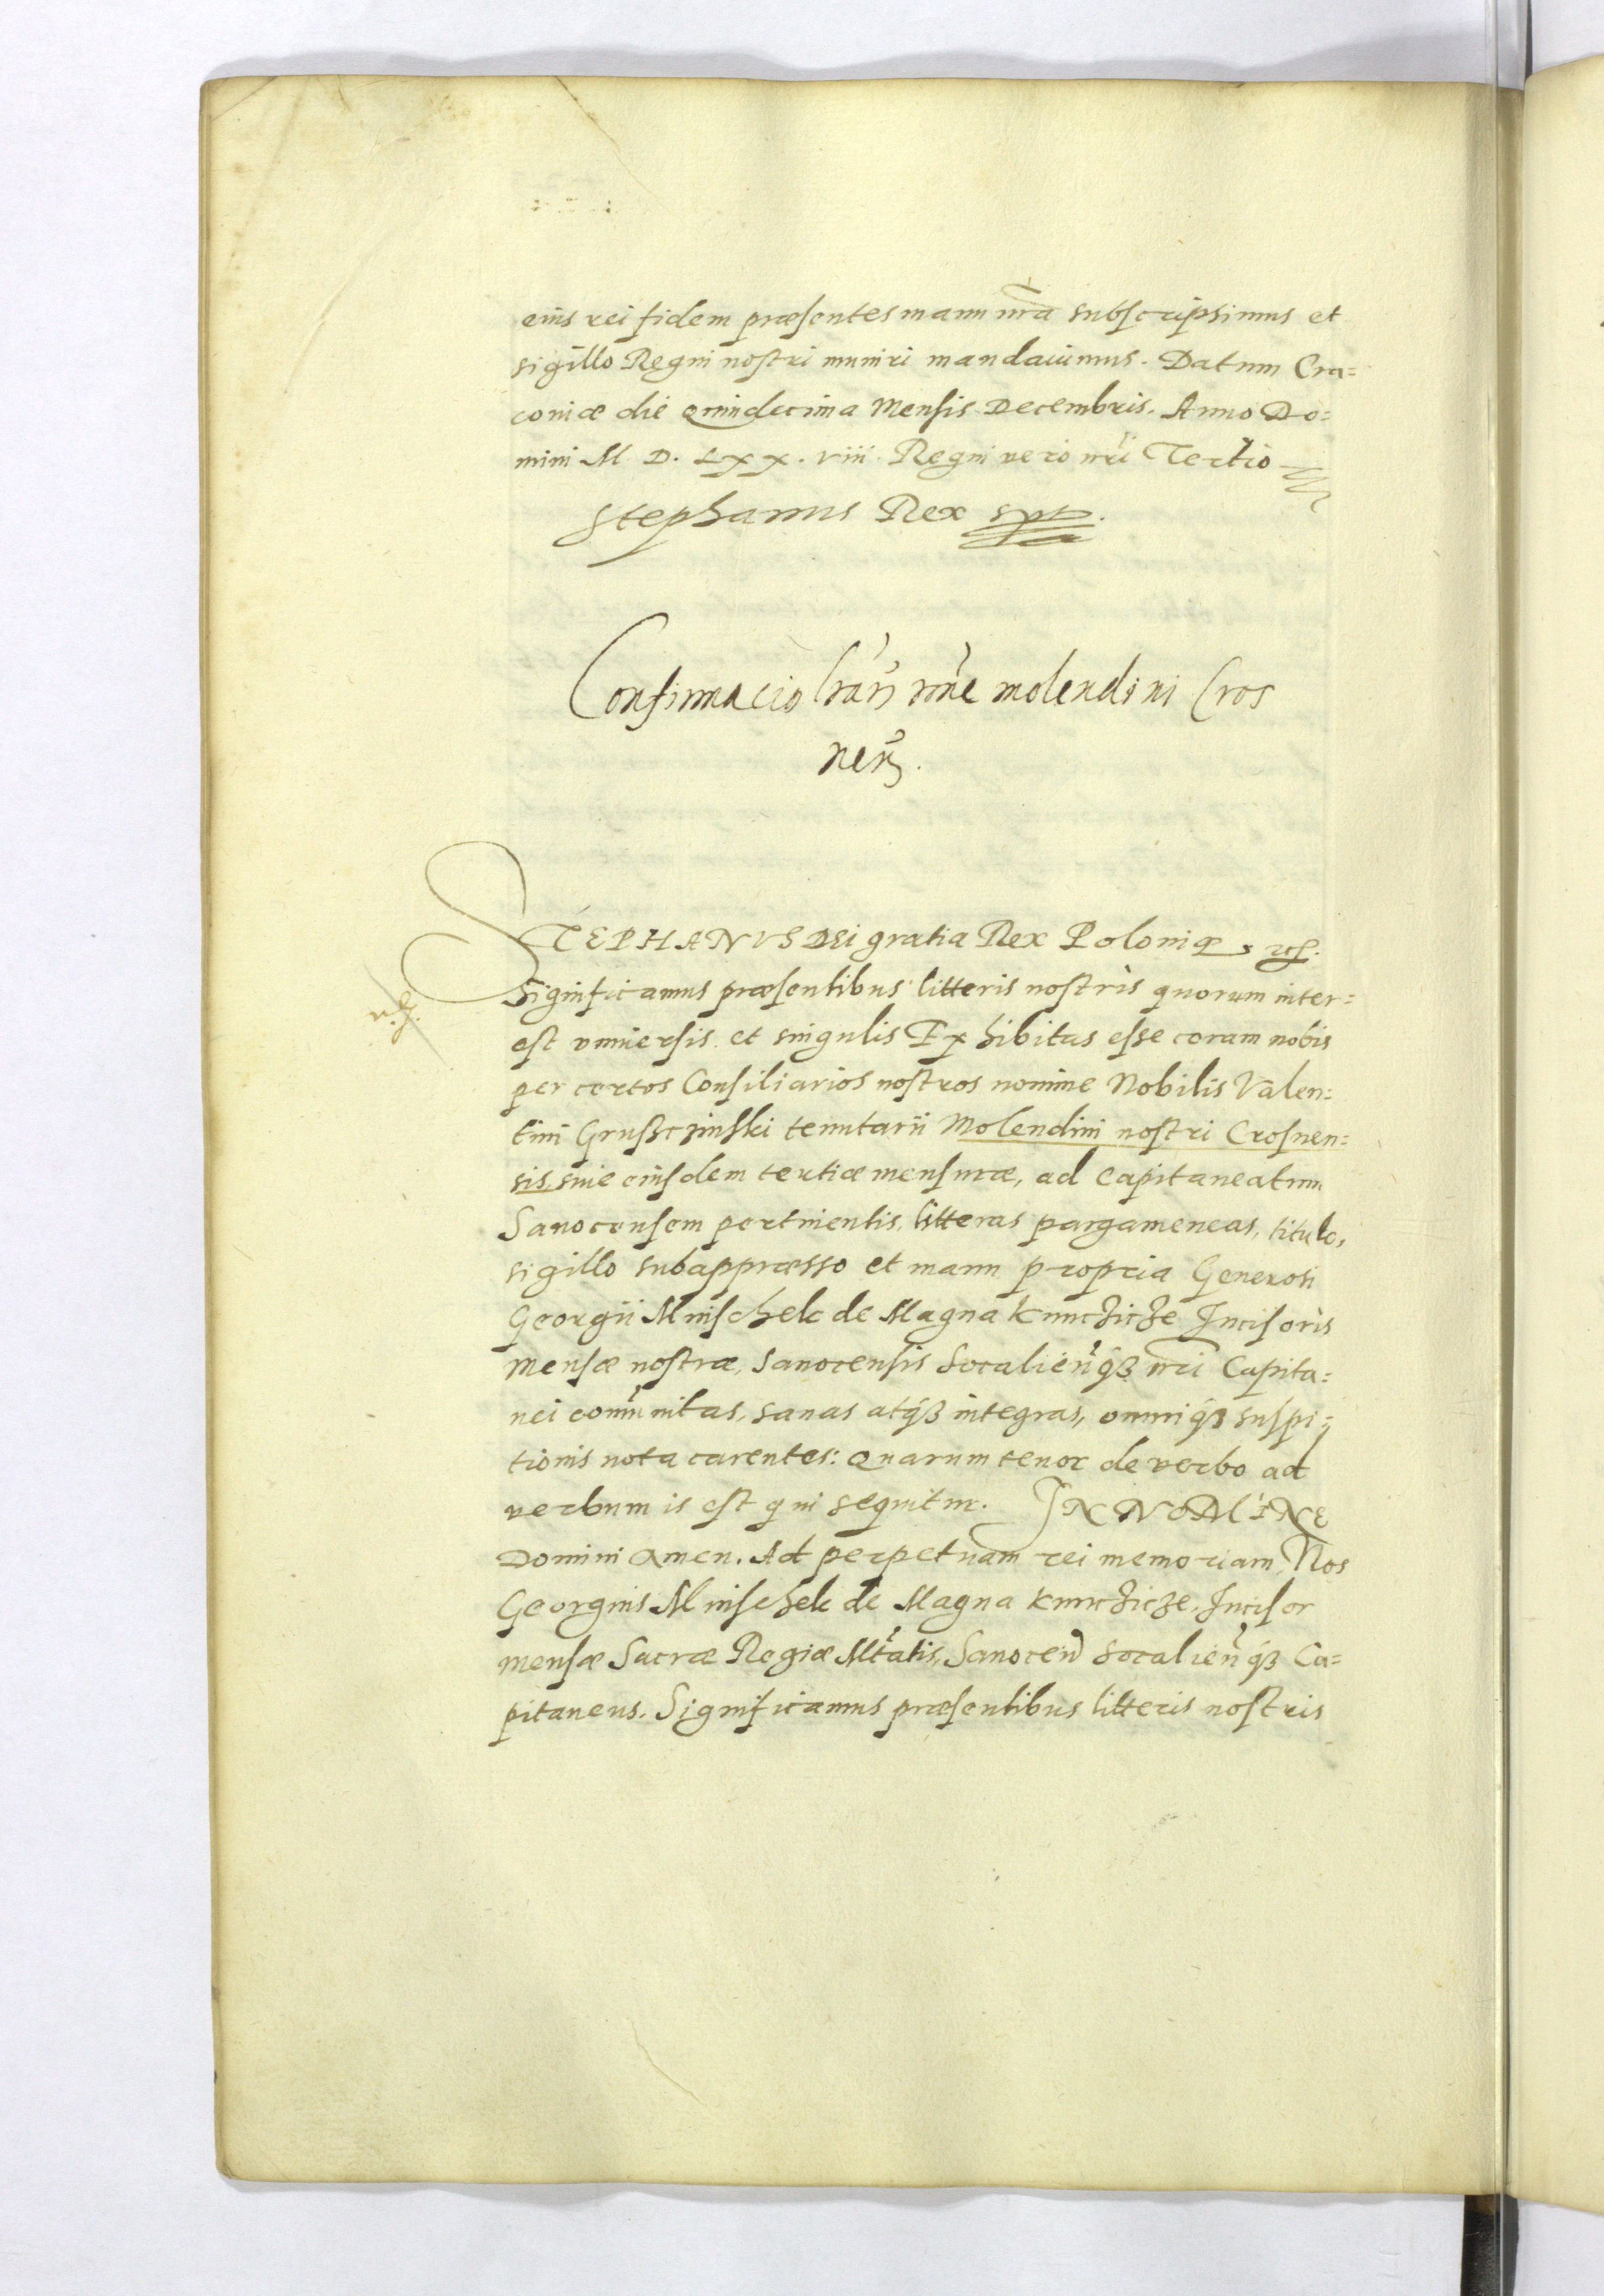 eius rei fidem præsentes manu nrã subscripsimus et
sigillo Regni nostri muniri mandauimus. Datum Cra=
couiæ die quindecima Mensis Decembris. Anno Do=
mini M. D. LXX. viii. Regni vero nrĩ Tertio
Stephanus Rex sspt.
Confirmacio lrãrũ rõne molendini Cros
neñ.
STEPHANVS DEi gratia Rex Poloniæ, etc.
Significamus præsentibus litteris nostris quorum inter=
est vniuersis et singulis Exhibitas esse coram nobis
per certos Consiliarios nostros nomine Nobilis Valen=
tini Grusczinski tenutarii Molendini nostri Crosnen=
sis, siue eiusdem tertiæ mensuræ, ad Capitaneatum
Sanocensem pertinentis, litteras pargameneas, titulo,
sigillo subappræsso et manu propria Generosi
Georgii Mnischek de Magna Kunczicze Incisoris
Mensæ nostræ, Sanocensis Socalieñq₃ nri Capita=
nei comũnitas, sanas atq₃ integras, omniq₃ suspi=
tionis nota carentes: Quarum tenor de verbo ad
verbum is est qui sequitur. IN NOMINE
Domini Amen. Ad perpetuam rei memoriam, Nos
Georgius Mnischek de Magna Kunczicze, Incisor
mensæ Sacræ Regiæ Mtãtis, Sanoceñ Socalieñq₃ Ca=
pitaneus. Significamus præsentibus litteris nostris